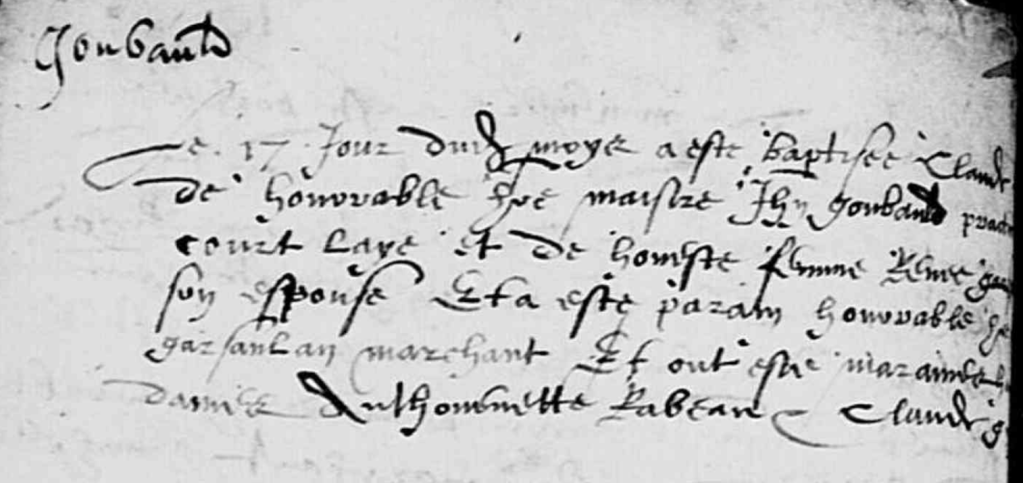 Goubault
Le 17 Jour dud moys a este baptisee Claude
de honorable hoe maistre Jhn Goubault pract
court Laye et de honeste femme Renee gar
son espouse Et a este parain honorable ho
garsanlan marchant Et ont este maraines
dames Anthoinnette Rabeau Claude g